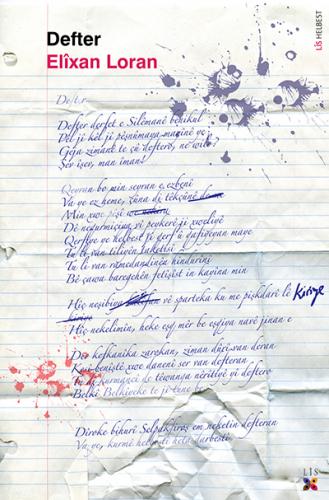 Defter
Elîxan Loran
LîS HELBEST
Defter
Defter derfet e Silêmanê bênikul
Pel jî kêl ji pêşnûmaya manînê ye
Geja zimanê te çû defterô, ne wilo?
Şêv îşev, man îman!
Qeyran bo min seyran e ezbenî
Va ye ez heme, zûna di têkçûnê
Min xwe pişî we
Dê neqirmiçiya vî peykerê ji xweliyê
Qertiye ye helbest ji derf û qafiyeyan maye
Tu lê van tiliyên
Tu li van ramedandinên hindurîn
Bê çawa baregehên fetisîst in kayina min
Hîç nesîbiya vê sparteka ku me pişkdarî lê kiriye
kiriye
Hîç nekelimin, heke esq mêr be esqiya navê jinan e
Der kefkanika zarokan, ziman dûrî van deran
Kuşbeniştê xwe danenî ser van defteran
Tu bi kurmancî de têwanga nêrîtîyê vî deftero
Belkî Belkîyeke te jî tune be
Dîroke bihurî Selpakfiroş em neketin defteran
Va ye, kurmê helbestê heta darbestê
LîS